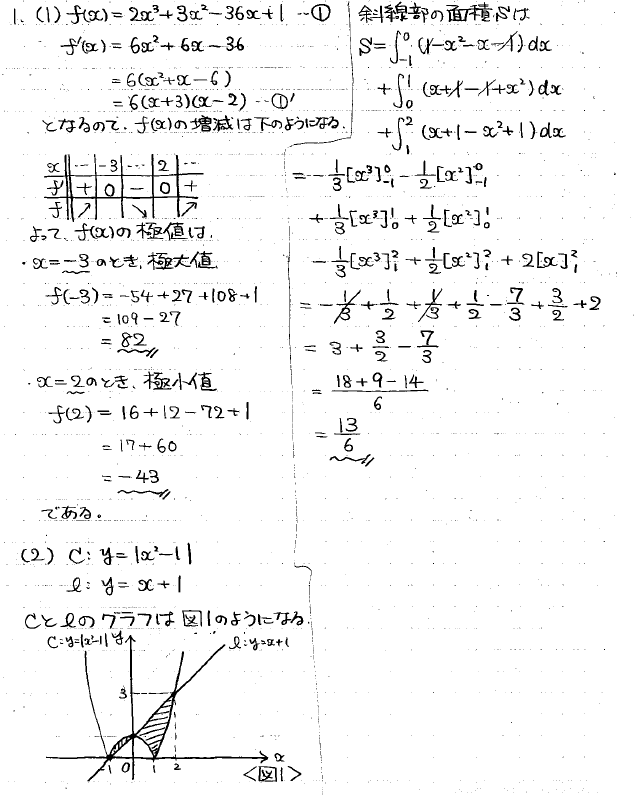 1. (1) f(x) = 2x³+3x²-36x+1 …①
f'(x) = 6x²+6x-36
= 6(x²+x-6)
= 6(x+3)(x-2) …①'
となるので、f(x)の増減は下のようになる。
x | … | -3 | … | 2 | …
f' | + | 0 | - | 0 | +
f | ↗ | | ↘ | | ↗
よって、f(x)の極値は、
・x=-3のとき、極大値
f(-3) = -54+27+108+1
= 109-27
= 82
・x=2のとき、極小値
f(2) = 16+12-72+1
= 17+60
= -43
である。
(2) C: y=|x²-1|
l: y = x+1
Cとlのグラフは図1のようになる。
C:y=|x²-1| y l:y=x+1
3
-1 0 1 2 x
<図1>
斜線部の面積Sは
S=∫₋₁⁰ (1-x²-x-1)dx
+∫₀¹ (x+1-1+x²)dx
+∫₁² (x+1-x²+1)dx
= -1/3[x³]₋₁⁰ - 1/2[x²]₋₁⁰
+ 1/3[x³]₀¹ + 1/2[x²]₀¹
- 1/3[x³]₁² + 1/2[x²]₁² + 2[x]₁²
= -1/3 + 1/2 + 1/3 + 1/2 - 7/3 + 3/2 + 2
= 3 + 3/2 - 7/3
= (18+9-14)/6
= 13/6